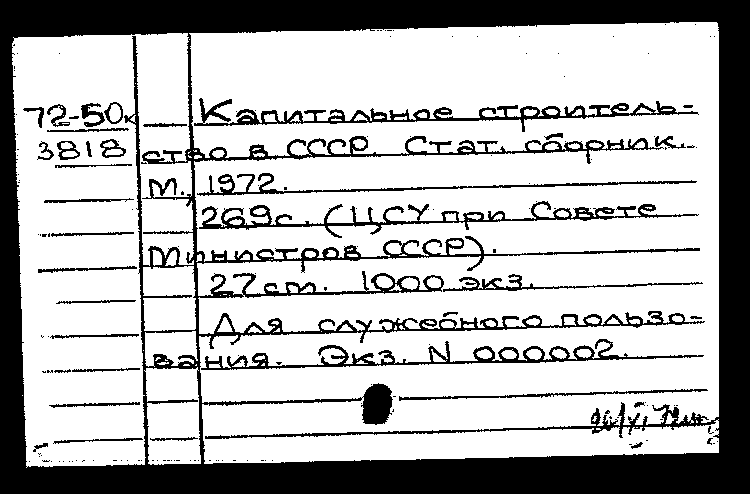 72-50к
3818
Капитальное строитель-
ство в СССР. Стат. сборник.
М., 1972.
269с. (ЦСУ при Совете
Министров СССР).
27 cm. 1000 экз.
Для служебного пользо-
вания. Экз. N 000002.